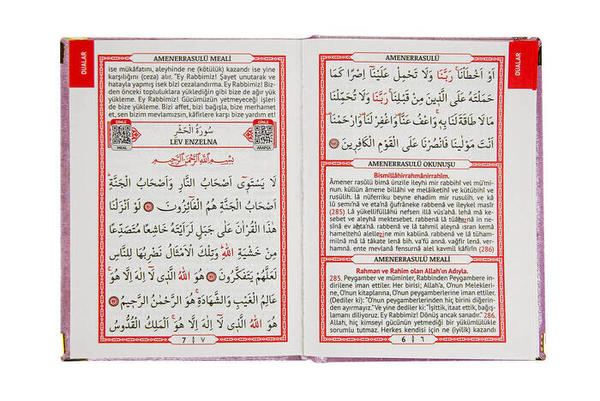 DUALAR
اَوْ اَخْطَأْنَا رَبَّنَا وَلَا تَحْمِلْ عَلَيْنَا اِصْرًا كَمَا
حَمَلْتَهُ عَلَى الَّذِينَ مِنْ قَبْلِنَا رَبَّنَا وَلَا تُحَمِّلْنَا
مَا لَا طَاقَةَ لَنَا بِهِ وَاعْفُ عَنَّا وَاغْفِرْ لَنَا وَارْحَمْنَا
اَنْتَ مَوْلٰينَا فَانْصُرْنَا عَلَى الْقَوْمِ الْكَافِرِينَ
AMENERRASULÜ OKUNUŞU
Bismillâhirrahmânirrahîm.
Âmener rasûlü bimâ ünzile ileyhi mir rabbihî vel mü'mi-
nun. küllün âmene billâhi ve melâiketihî ve kütübihî ve
rusülih. lâ nüferriku beyne ehadim mir rusulih. ve kâ
lû semi'nâ ve eta'nâ ğufrâneke rabbenâ ve ileykel masîr
(285) Lâ yükellifüllâhü nefsen illâ vüs'ahâ. lehâ mâ ke-
sebet ve aleyhâ mektesebet. rabbenâ lâ tüâhıznâ in ne-
sînâ ev ahta'nâ. rabbenâ ve lâ tahmil aleynâ ısran kemâ
hameltehû alellezîne min kablinâ. rabbenâ ve lâ tüham-
milnâ mâ lâ tâkate lenâ bih. va'fü annâ. vağfir lenâ. ver-
hamnâ. ente mevlânâ fensurnâ alel kavmil kâfirîn (286)
AMENERRASULÜ MEALİ
Rahman ve Rahim olan Allah'ın Adıyla.
285. Peygamber ve müminler, Rabbinden Peygambere in-
dirilene iman ettiler. Her birisi; Allah'a, O'nun Melekleri-
ne, O'nun kitaplarına, O'nun peygamberlerine iman ettiler.
(Dediler ki): "O'nun peygamberlerinden hiç birini diğerin-
den ayırmayız." Ve yine dediler ki: "İşittik, itaat ettik, bağış-
lamanı diliyoruz. Ey Rabbimiz! Dönüş ancak sanadır." 286.
Allah, hiç kimseyi gücünün yetmediği bir yükümlülükle
sorumlu tutmaz. Herkes kendisi için ne (iyilik) kazandı
6 | ٦
DUALAR
AMENERRASULÜ MEALİ
ise mükâfatını, aleyhinde ne (kötülük) kazandı ise yine
karşılığını (ceza) alır. "Ey Rabbimiz! Şayet unutarak ve
hatayla yapmış isek bizi cezalandırma. Ey Rabbimiz! Biz-
den önceki topluluklara yüklediğin gibi bize de ağır yük
yükleme. Ey Rabbimiz! Gücümüzün yetmeyeceği işleri
de bize yükleme. Bizi affet, bizi bağışla, bize merhamet
et, sen bizim mevlamızsın, kâfirlere karşı bize yardım et!
DİNLE
MEAL
سُورَةُ الْحَشْرِ
LEV ENZELNA
DİNLE
ARAPÇA
بِسْمِ اللّٰهِ الرَّحْمٰنِ الرَّحِيمِ
لَا يَسْتَوِى اَصْحَابُ النَّارِ وَاَصْحَابُ الْجَنَّةِ
اَصْحَابُ الْجَنَّةِ هُمُ الْفَائِزُونَ لَوْ اَنْزَلْنَا
هٰذَا الْقُرْاٰنَ عَلٰى جَبَلٍ لَرَاَيْتَهُ خَاشِعًا مُتَصَدِّعًا
مِنْ خَشْيَةِ اللّٰهِ وَتِلْكَ الْاَمْثَالُ نَضْرِبُهَا لِلنَّاسِ
لَعَلَّهُمْ يَتَفَكَّرُونَ هُوَ اللّٰهُ الَّذِى لَا اِلٰهَ اِلَّا هُوَ
عَالِمُ الْغَيْبِ وَالشَّهَادَةِ هُوَ الرَّحْمٰنُ الرَّحِيمُ
هُوَ اللّٰهُ الَّذِى لَا اِلٰهَ اِلَّا هُوَ اَلْمَلِكُ الْقُدُّوسُ
7 | ٧